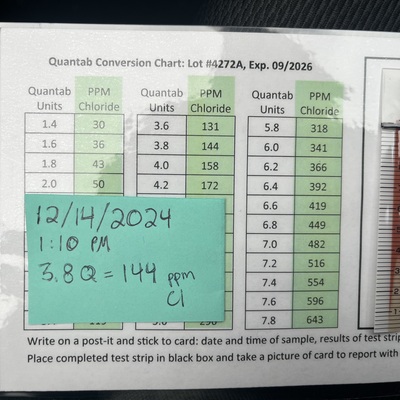 Quantab Conversion Chart: Lot #4272A, Exp. 09/2026
Quantab Units PPM Chloride Quantab Units PPM Chloride Quantab Units PPM Chloride
1.4 30 3.6 131 5.8 318
1.6 36 3.8 144 6.0 341
1.8 43 4.0 158 6.2 366
2.0 50 4.2 172 6.4 392
6.6 419
6.8 449
7.0 482
7.2 516
7.4 554
7.6 596
7.8 643
12/14/2024
1:10 PM
3.8Q = 144 ppm
Cl
Write on a post-it and stick to card: date and time of sample, results of test strip
Place completed test strip in black box and take a picture of card to report with